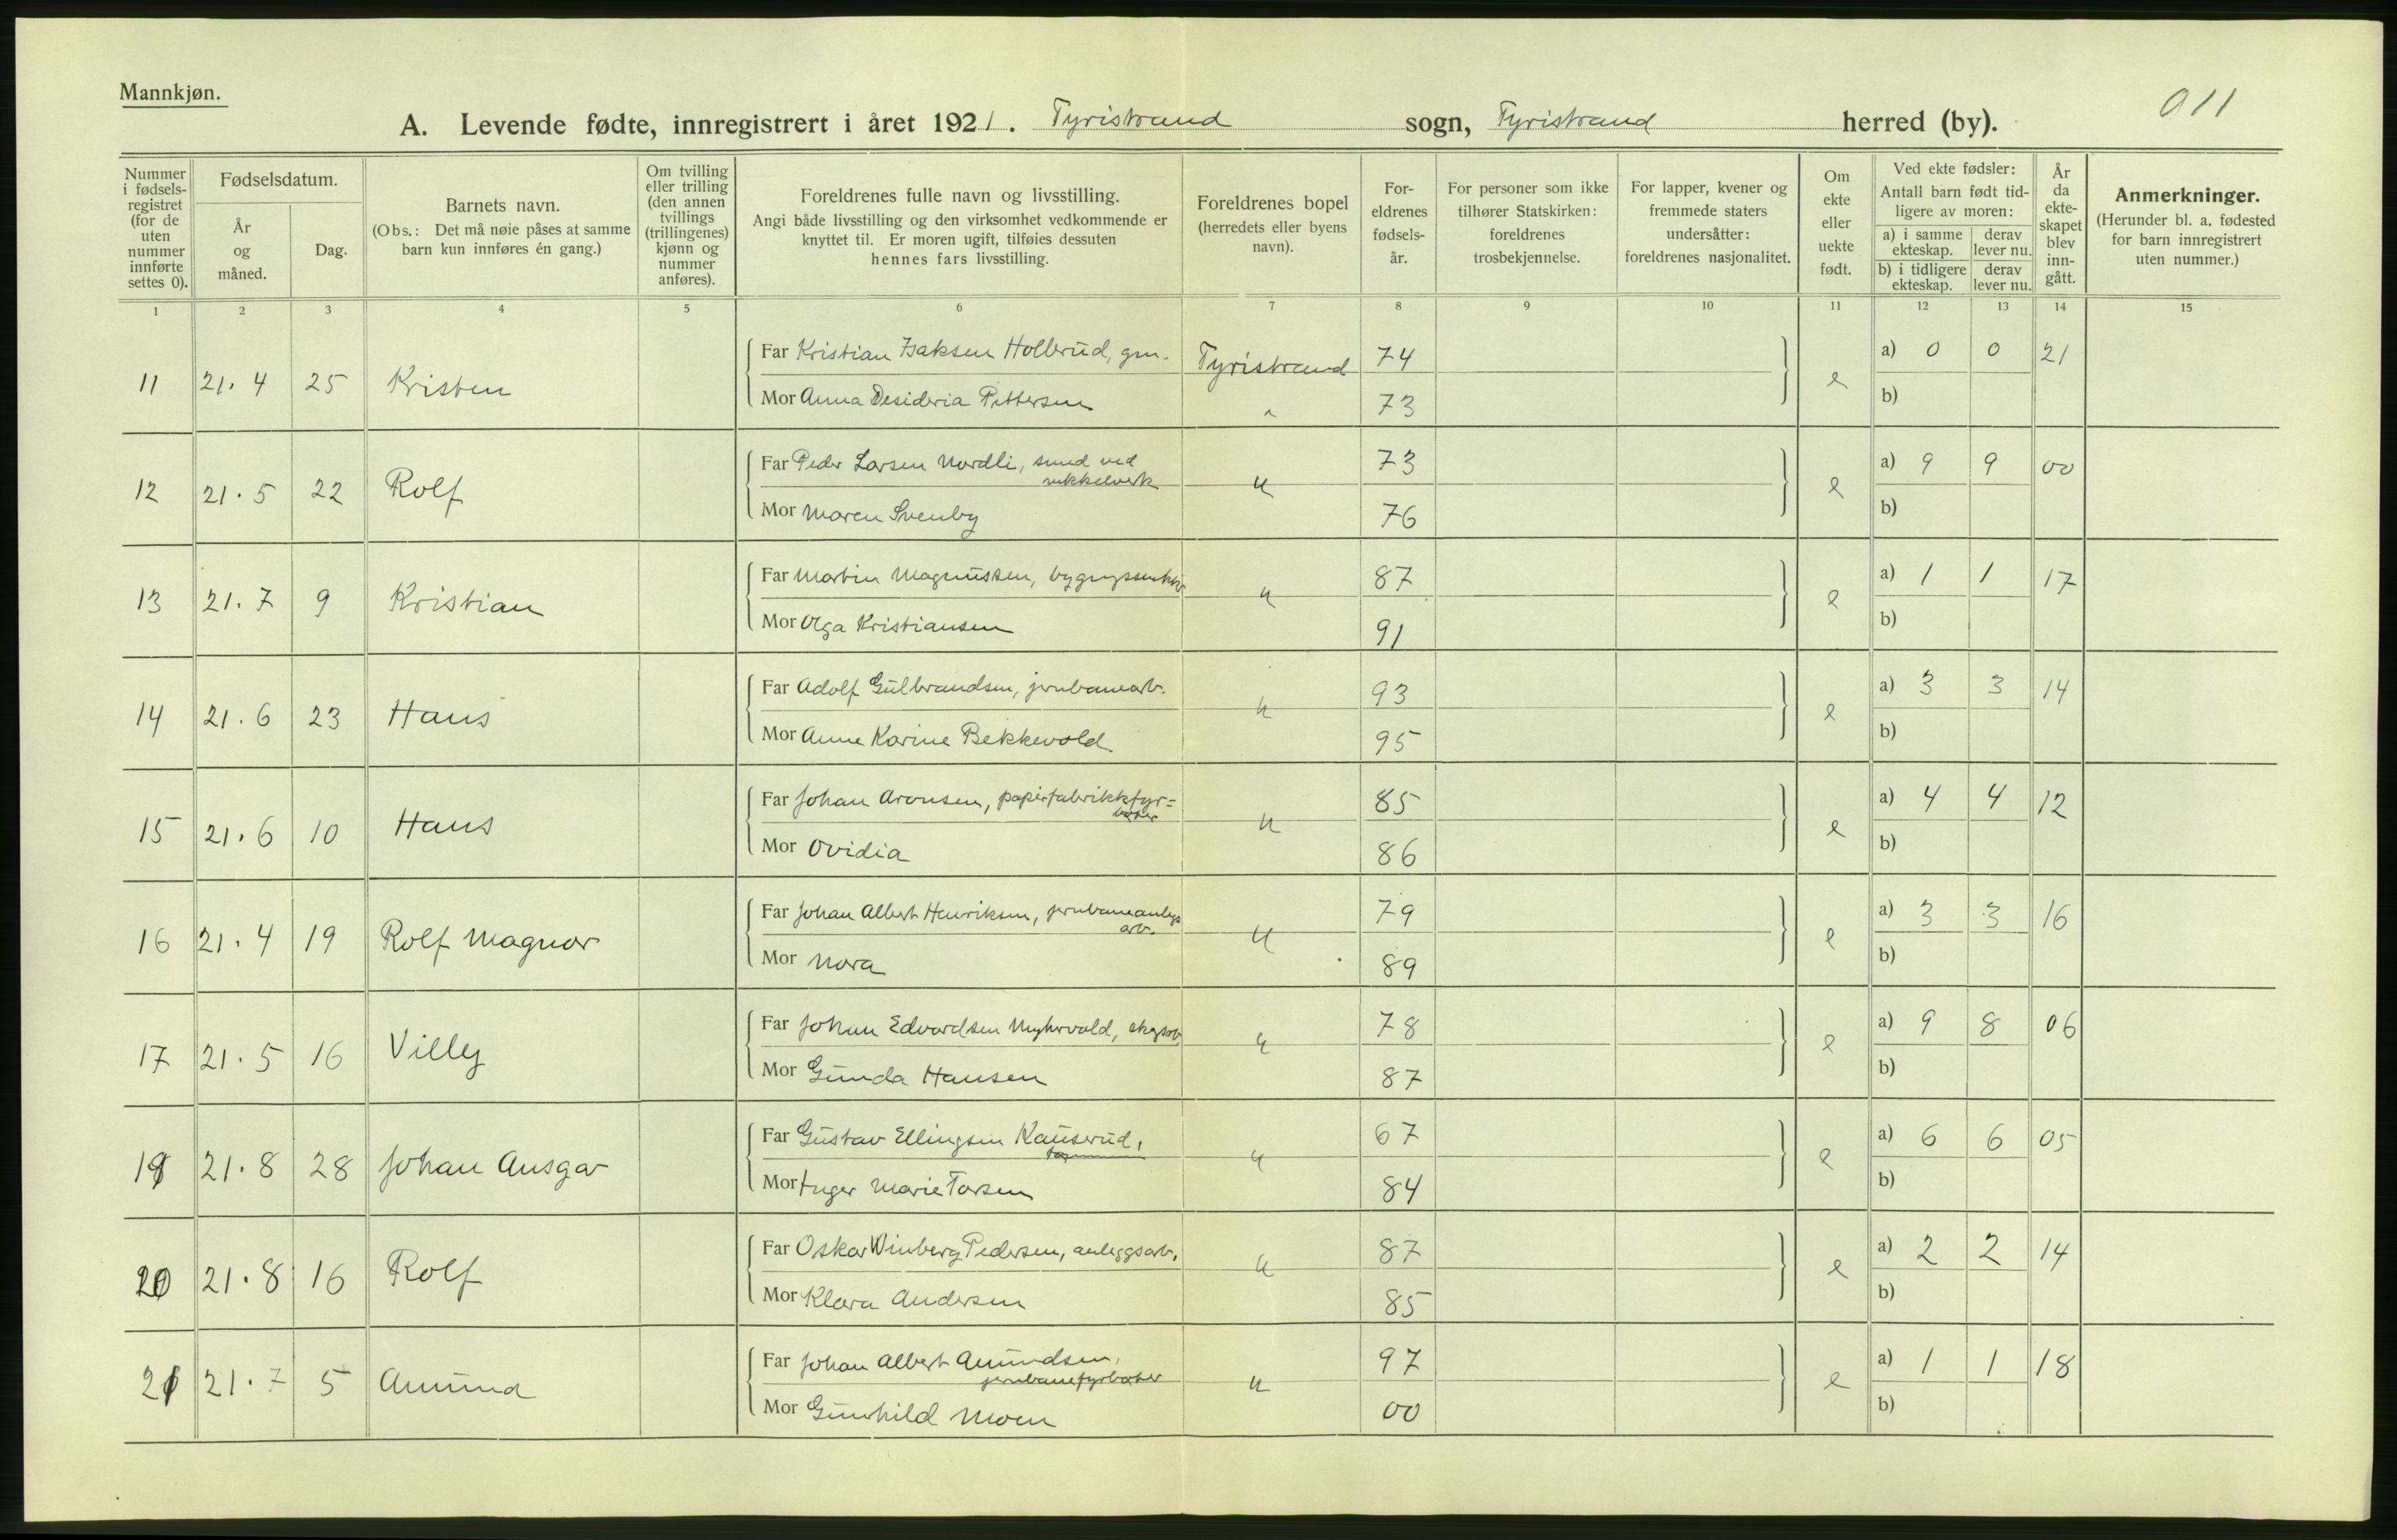 Mannkjøn.
011
A. Levende fødte, innregistrert i året 1921. Tyristrand sogn, Tyristrand herred (by).
Nummer i fødselsregistret (for de uten nummer innførte settes 0).
Fødselsdatum.
År og måned.
Dag.
Barnets navn.
(Obs.: Det må nøie påses at samme barn kun innføres én gang.)
Om tvilling eller trilling (den annen tvillings (trillingenes) kjønn og nummer anføres).
Foreldrenes fulle navn og livsstilling.
Angi både livsstilling og den virksomhet vedkommende er knyttet til. Er moren ugift, tilføies dessuten hennes fars livsstilling.
Foreldrenes bopel (herredets eller byens navn).
Foreldrenes fødselsår.
For personer som ikke tilhører Statskirken: foreldrenes trosbekjennelse.
For lapper, kvener og fremmede staters undersåtter: foreldrenes nasjonalitet.
Om ekte eller uekte født.
Ved ekte fødsler: Antall barn født tidligere av moren:
a) i samme ekteskap. derav lever nu.
b) i tidligere ekteskap. derav lever nu.
År da ekteskapet blev inngått.
Anmerkninger.
(Herunder bl. a. fødested for barn innregistrert uten nummer.)
1 2 3 4 5 6 7 8 9 10 11 12 13 14 15
Far Kristian Isaksen Hollerud, grn. Tyristrand 74 a) 0 0 21
11 21. 4 25 Kristen e
Mor Anna Desideria Pettersen " 73 b)
Far Peder Larsen Nordli, smed ved 73 a) 9 9 00
nikkelverk
12 21. 5 22 Rolf " e
Mor Maren Svenby 76 b)
Far Martin Magnussen, 87 a) 1 1 17
13 21. 7 9 Kristian " e
Mor Olga Kristiansen 91 b)
Far Adolf Gulbrandsen, jernbanearb. 93 a) 3 3 14
14 21. 6 23 Hans " e
Mor Anne Karine Bekkevold 95 b)
Far Johan Aronsen, papirfabrikkfyr= 85 a) 4 4 12
bøter
15 21. 6 10 Hans " e
Mor Ovidia 86 b)
Far Johan Albert Henriksen, jernbaneanlegs 79 a) 3 3 16
arb.
16 21. 4 19 Rolf Magnor " e
Mor Nora 89 b)
Far Johan Edvardsen Myhrvold, skogsarb 78 a) 9 8 06
17 21. 5 16 Villy " e
Mor Gunda Hansen 87 b)
Far Gustav Ellingsen Kauserud, 67 a) 6 6 05
19 21. 8 28 Johan Ansgar " e
Mor Inger Marie Torsen 84 b)
Far Oskar Winberg Pedersen, anleggsarb. 87 a) 2 2 14
20 21. 8 16 Rolf " e
Mor Klara Andersen 85 b)
Far Johan Albert Amundsen, 97 a) 1 1 18
jernbanefyrbøter
21 21. 7 5 Amund " e
Mor Gunhild Moen 00 b)